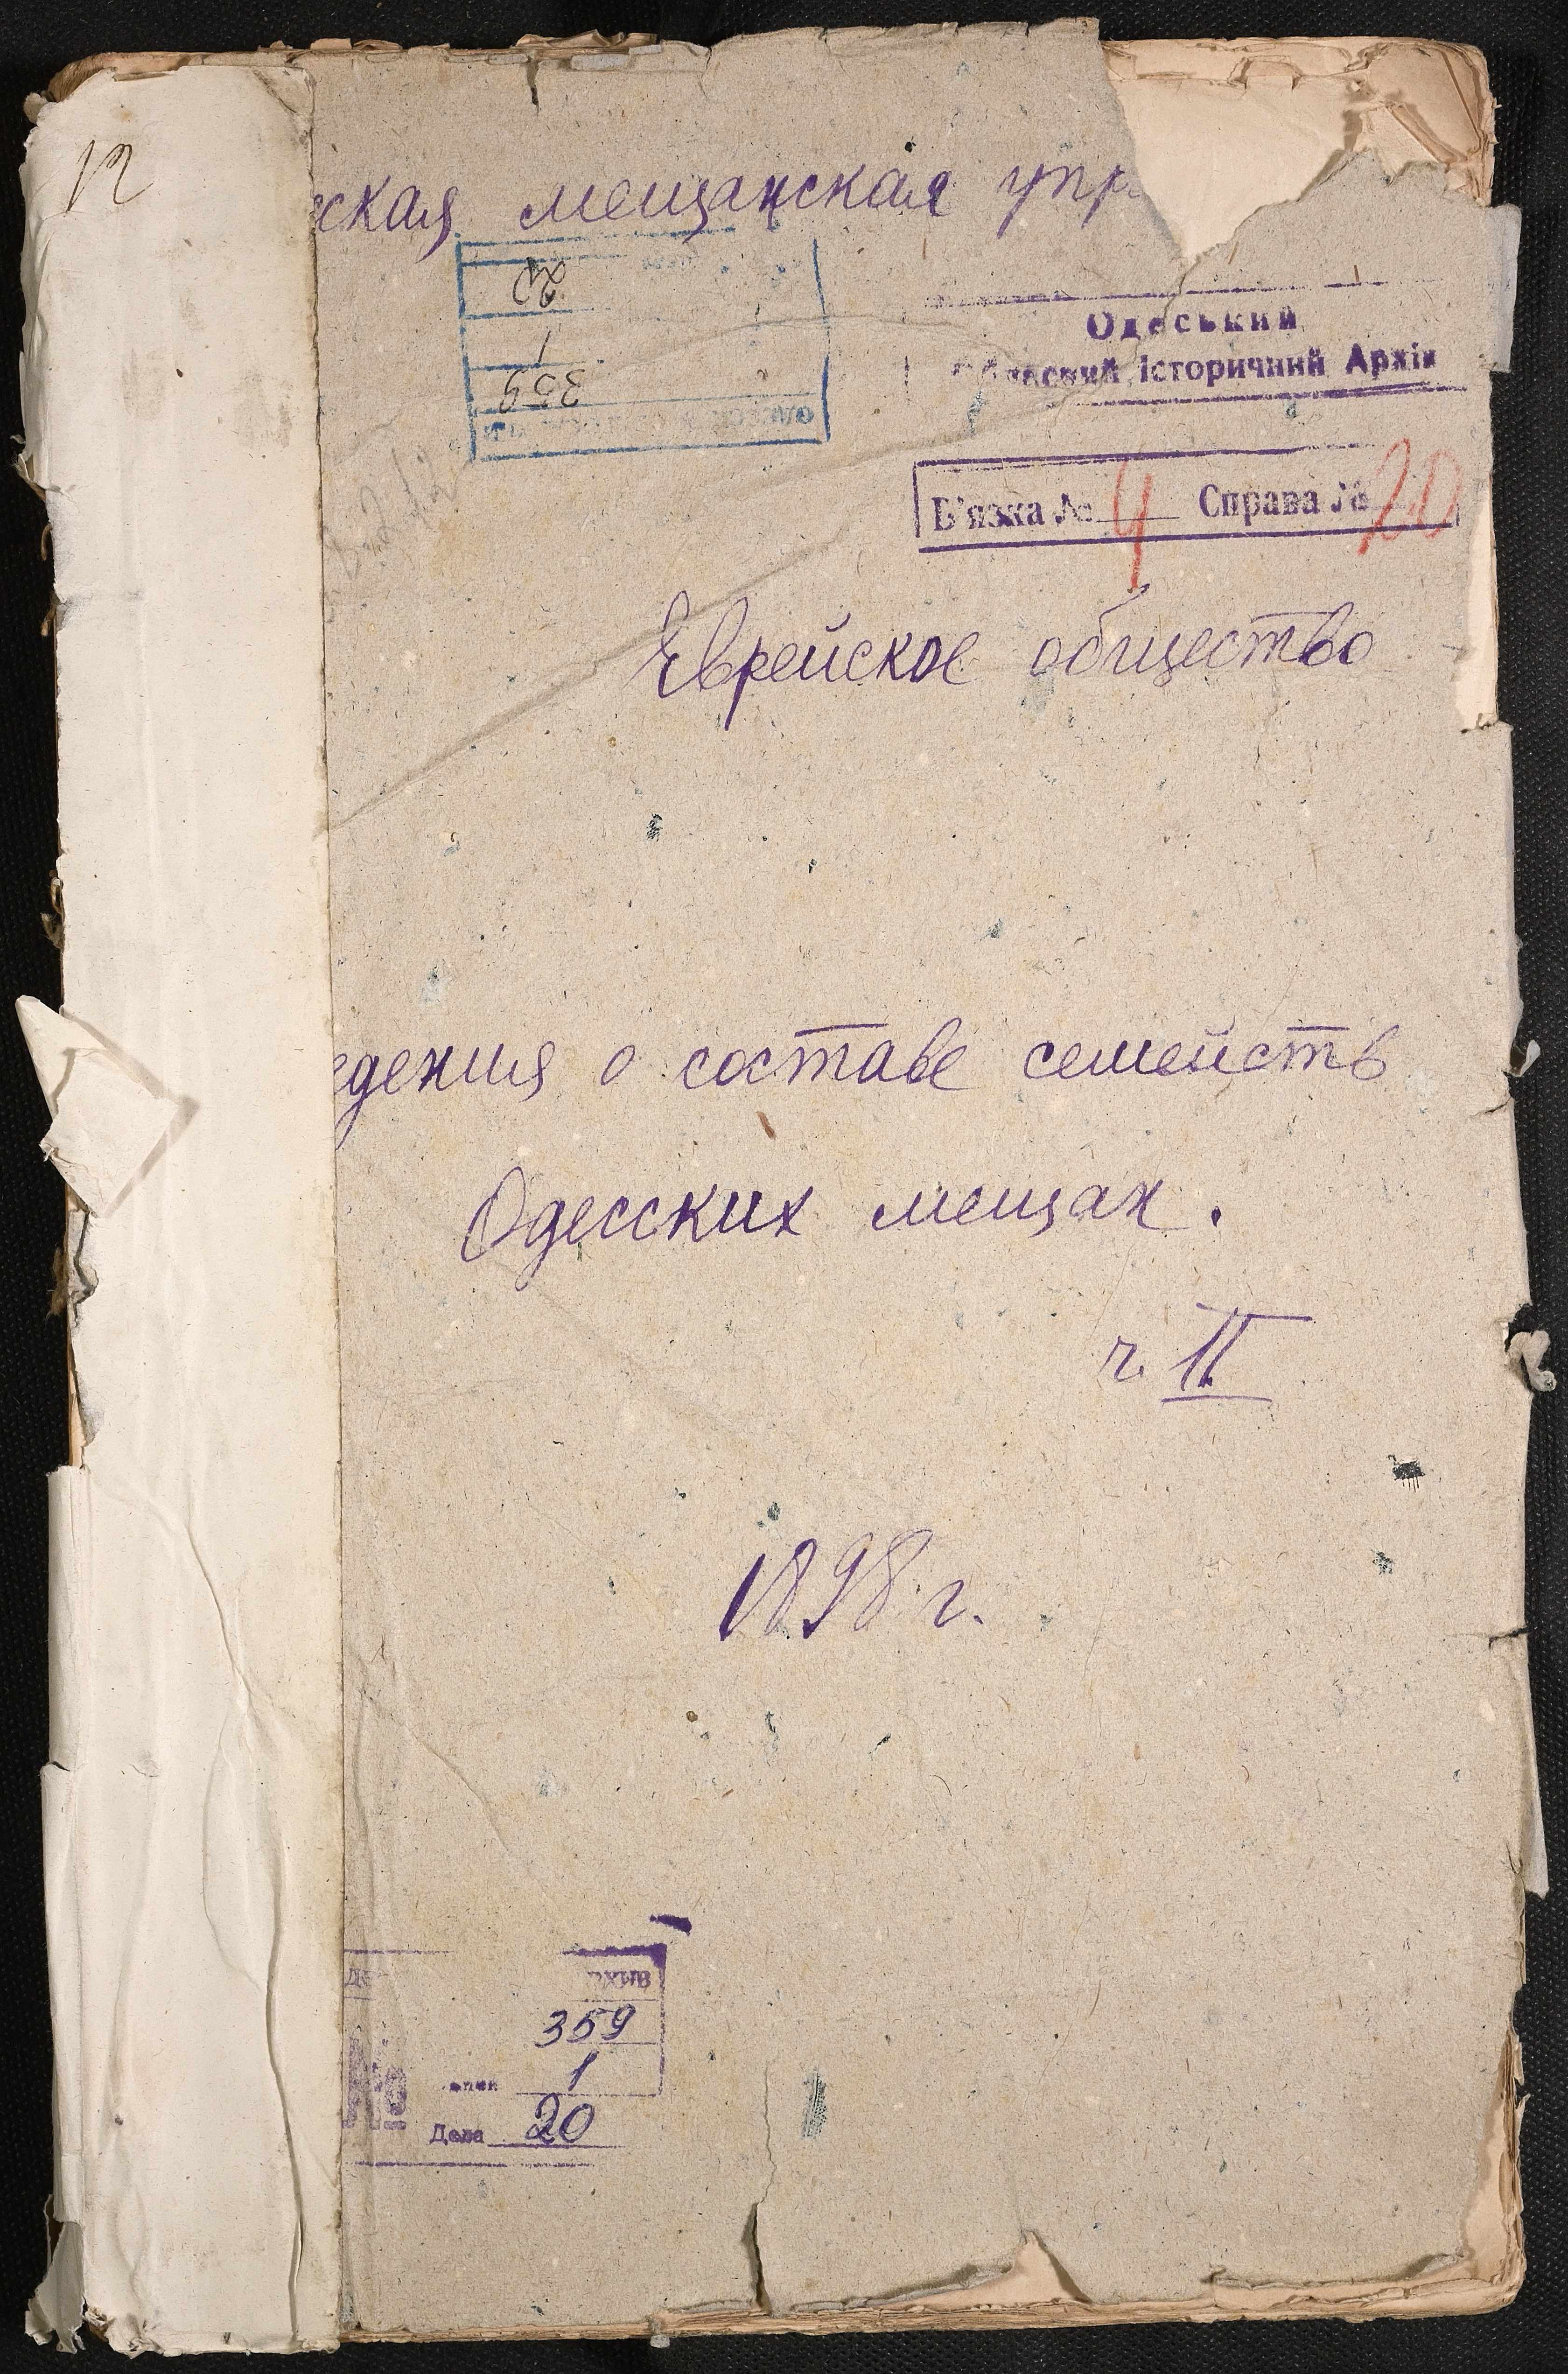 ская мещанская упр
359
1
20
Одеський
Обласний Історичний Архів
В'язка № 4 Справа № 20
Еврейское общество
едения о составе семейств
Одесских мещан.
ч. II
1898 г.
359
1
№
Дела 20